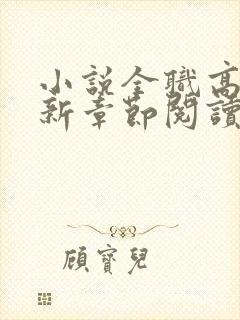 小説全職高
新章節閱讀
顧寶兒